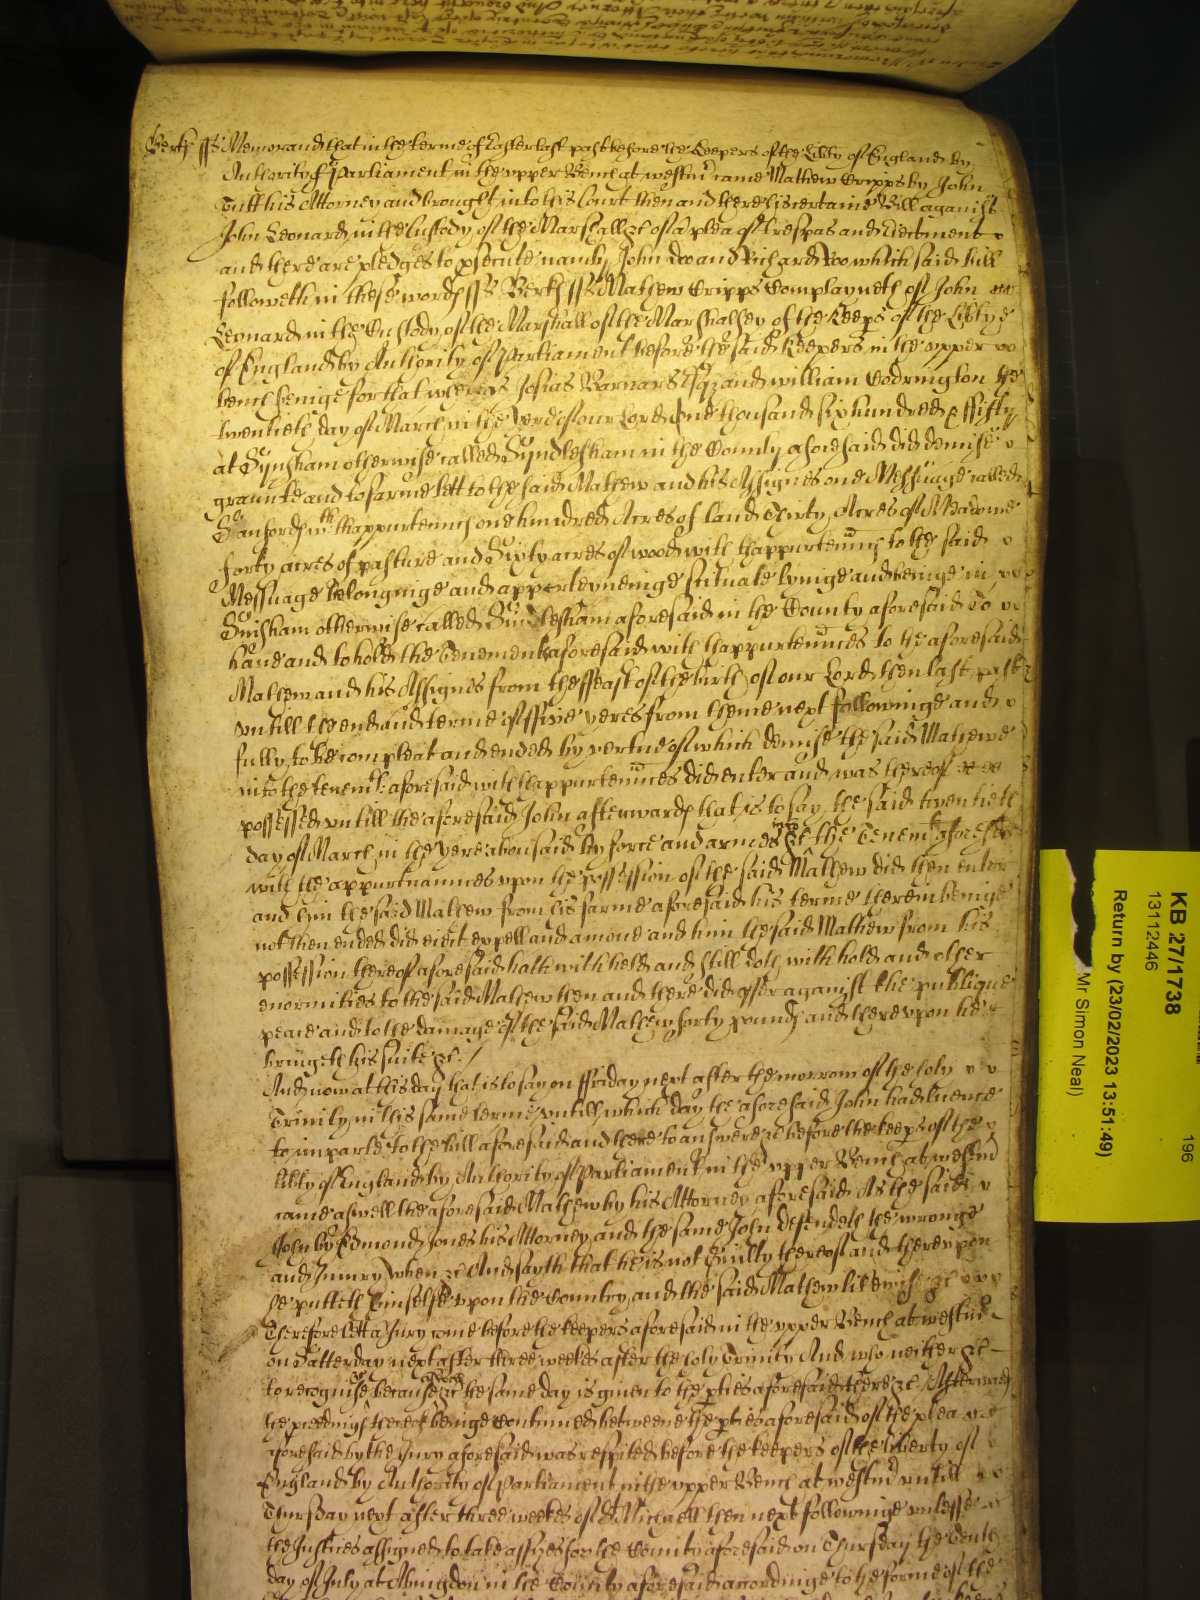 Berks ss Memorand that in the terme of Easter last past before the Keepers of the Libty of England by
Authority of Parliament in the upper Bench at westm came Mathew Cripps by John
Tutt his Attorney and brought into this Court then and there his certaine Bill against
John Leonard in the Custody of the Marshall &c of a plea of trespas and Eiectment
and there are pledges to psecute namly John Doo and Richard Roo which said bill
followeth in these words ss Berks ss Mathew Cripps Complayneth of John
Leonard in the Custody of the Marshall of the Marshalsey of the Keeps of the Libtye
of England by Authority of Parliament before the said Keepers in the upper
bench beinge for that whereas Josias Barnars Esqz and william Codrington the
twentieth day of March in the yere of our Lord One thousand six hundred & ffifty
at Synsham otherwise called Syndlesham in the County aforesaid did demise
graunte and to farme lett to the said Mathew and his Assignes one Messuage called
Sanfords wth thappurtenncs one hundred Acres of land Thirty Acres of Meadowe
forty acres of pasture and Sixty acres of wood with thappurtenncs to the said
Messuage belonginge and apperteyneinge scituate lyinge and beinge in
Sinsham otherwise called Sindlesham aforesaid in the County aforesaid To
have and to hold the Tenements aforesaid with thappurtennces to the aforesaid
Mathew and his Assignes from the ffeast of the birth of our Lord then last past
untill the end and terme of ffive yeres from thence next followinge and
fully to be compleat and ended by vertue of which demise the said Mathewe
into the tenemts aforesaid with thappurtennces did enter and was thereof
possessed untill the aforesaid John afterwards that is to say the said twentieth
day of March in the yere abovesaid by force and armes &c into the Tenemts aforesd
with the appurtnaunces upon the possession of the said Mathew did then enter
and him the said Mathew from his farme aforesaid his terme therein beinge
not then ended did eiect expell and amove and him the said Mathew from his
possession thereof aforesaid hath withheld and still doth withhold and other
enormities to the said Mathew then and there did offer against the publique
peace and to the damage of the said Mathew forty pounds and thereupon he
bringeth his suite &c /
And now at this day that is to say on ffriday next after the morrow of the holy
Trinity in this same terme untill which day the aforesaid John had licence
to imparle to the bill aforesaid and there to answere &c before the keeps of the
libty of England by Authority of Parliament in the upper Bench at westm
came aswell the aforesaid Mathew by his Attorney aforesaid As the said
John by Edmond Jones his Attorney and the same John defendeth the wronge
and Iniury when &c And sayth that he is not Guilty thereof and thereupon
he putteth himselfe upon the Country and the said Mathew likewise &c
Therefore lett a Jury come before the keepers aforesaid in the upper Bench at westm
on Satterday next after three weekes after the holy Trinity And who neither &c
to recognise &c because aswell &c the same day is given to the pties aforesaid there &c Afterwards
the pceedings thereof beinge Continued betweene the pties aforesaid of the plea
aforesaid by the Jury aforesaid was respited before the keepers of the liberty of
England by Authority of Parliament in the upper Bench at westm untill
Thursday next after three weekes of St Michaell then next followinge unlesse
the Justices assigned to take assizes for the County aforesaid on Thursday the tenth
day of July at Abingdon in the County aforesaid accordinge to the forme of the
KB 27/1738
196
13112446
Return by (23/02/2023 13:51:49)
Mr Simon Neal)